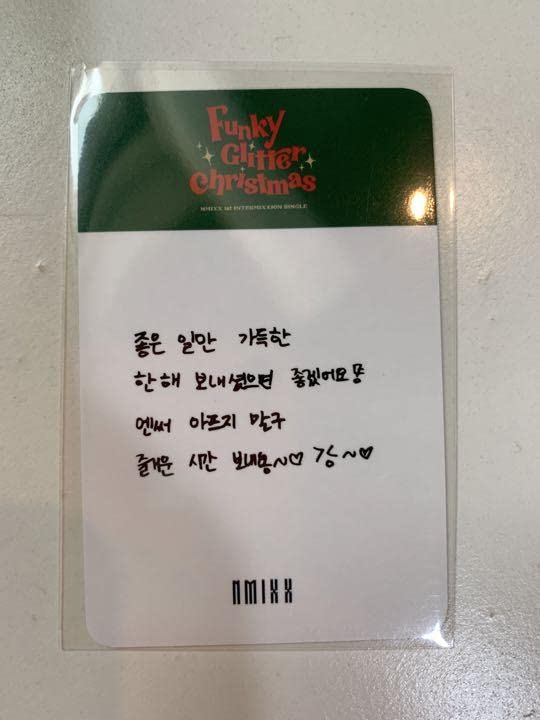 Funky
Glitter
Christmas
NMIXX 1st INTERMIXXION SINGLE
좋은 일만 가득한
한해 보내셨으면 좋겠어요옹
엔써 아프지 말구
즐거운 시만 보내용~♡ 강~♡
NMIXX